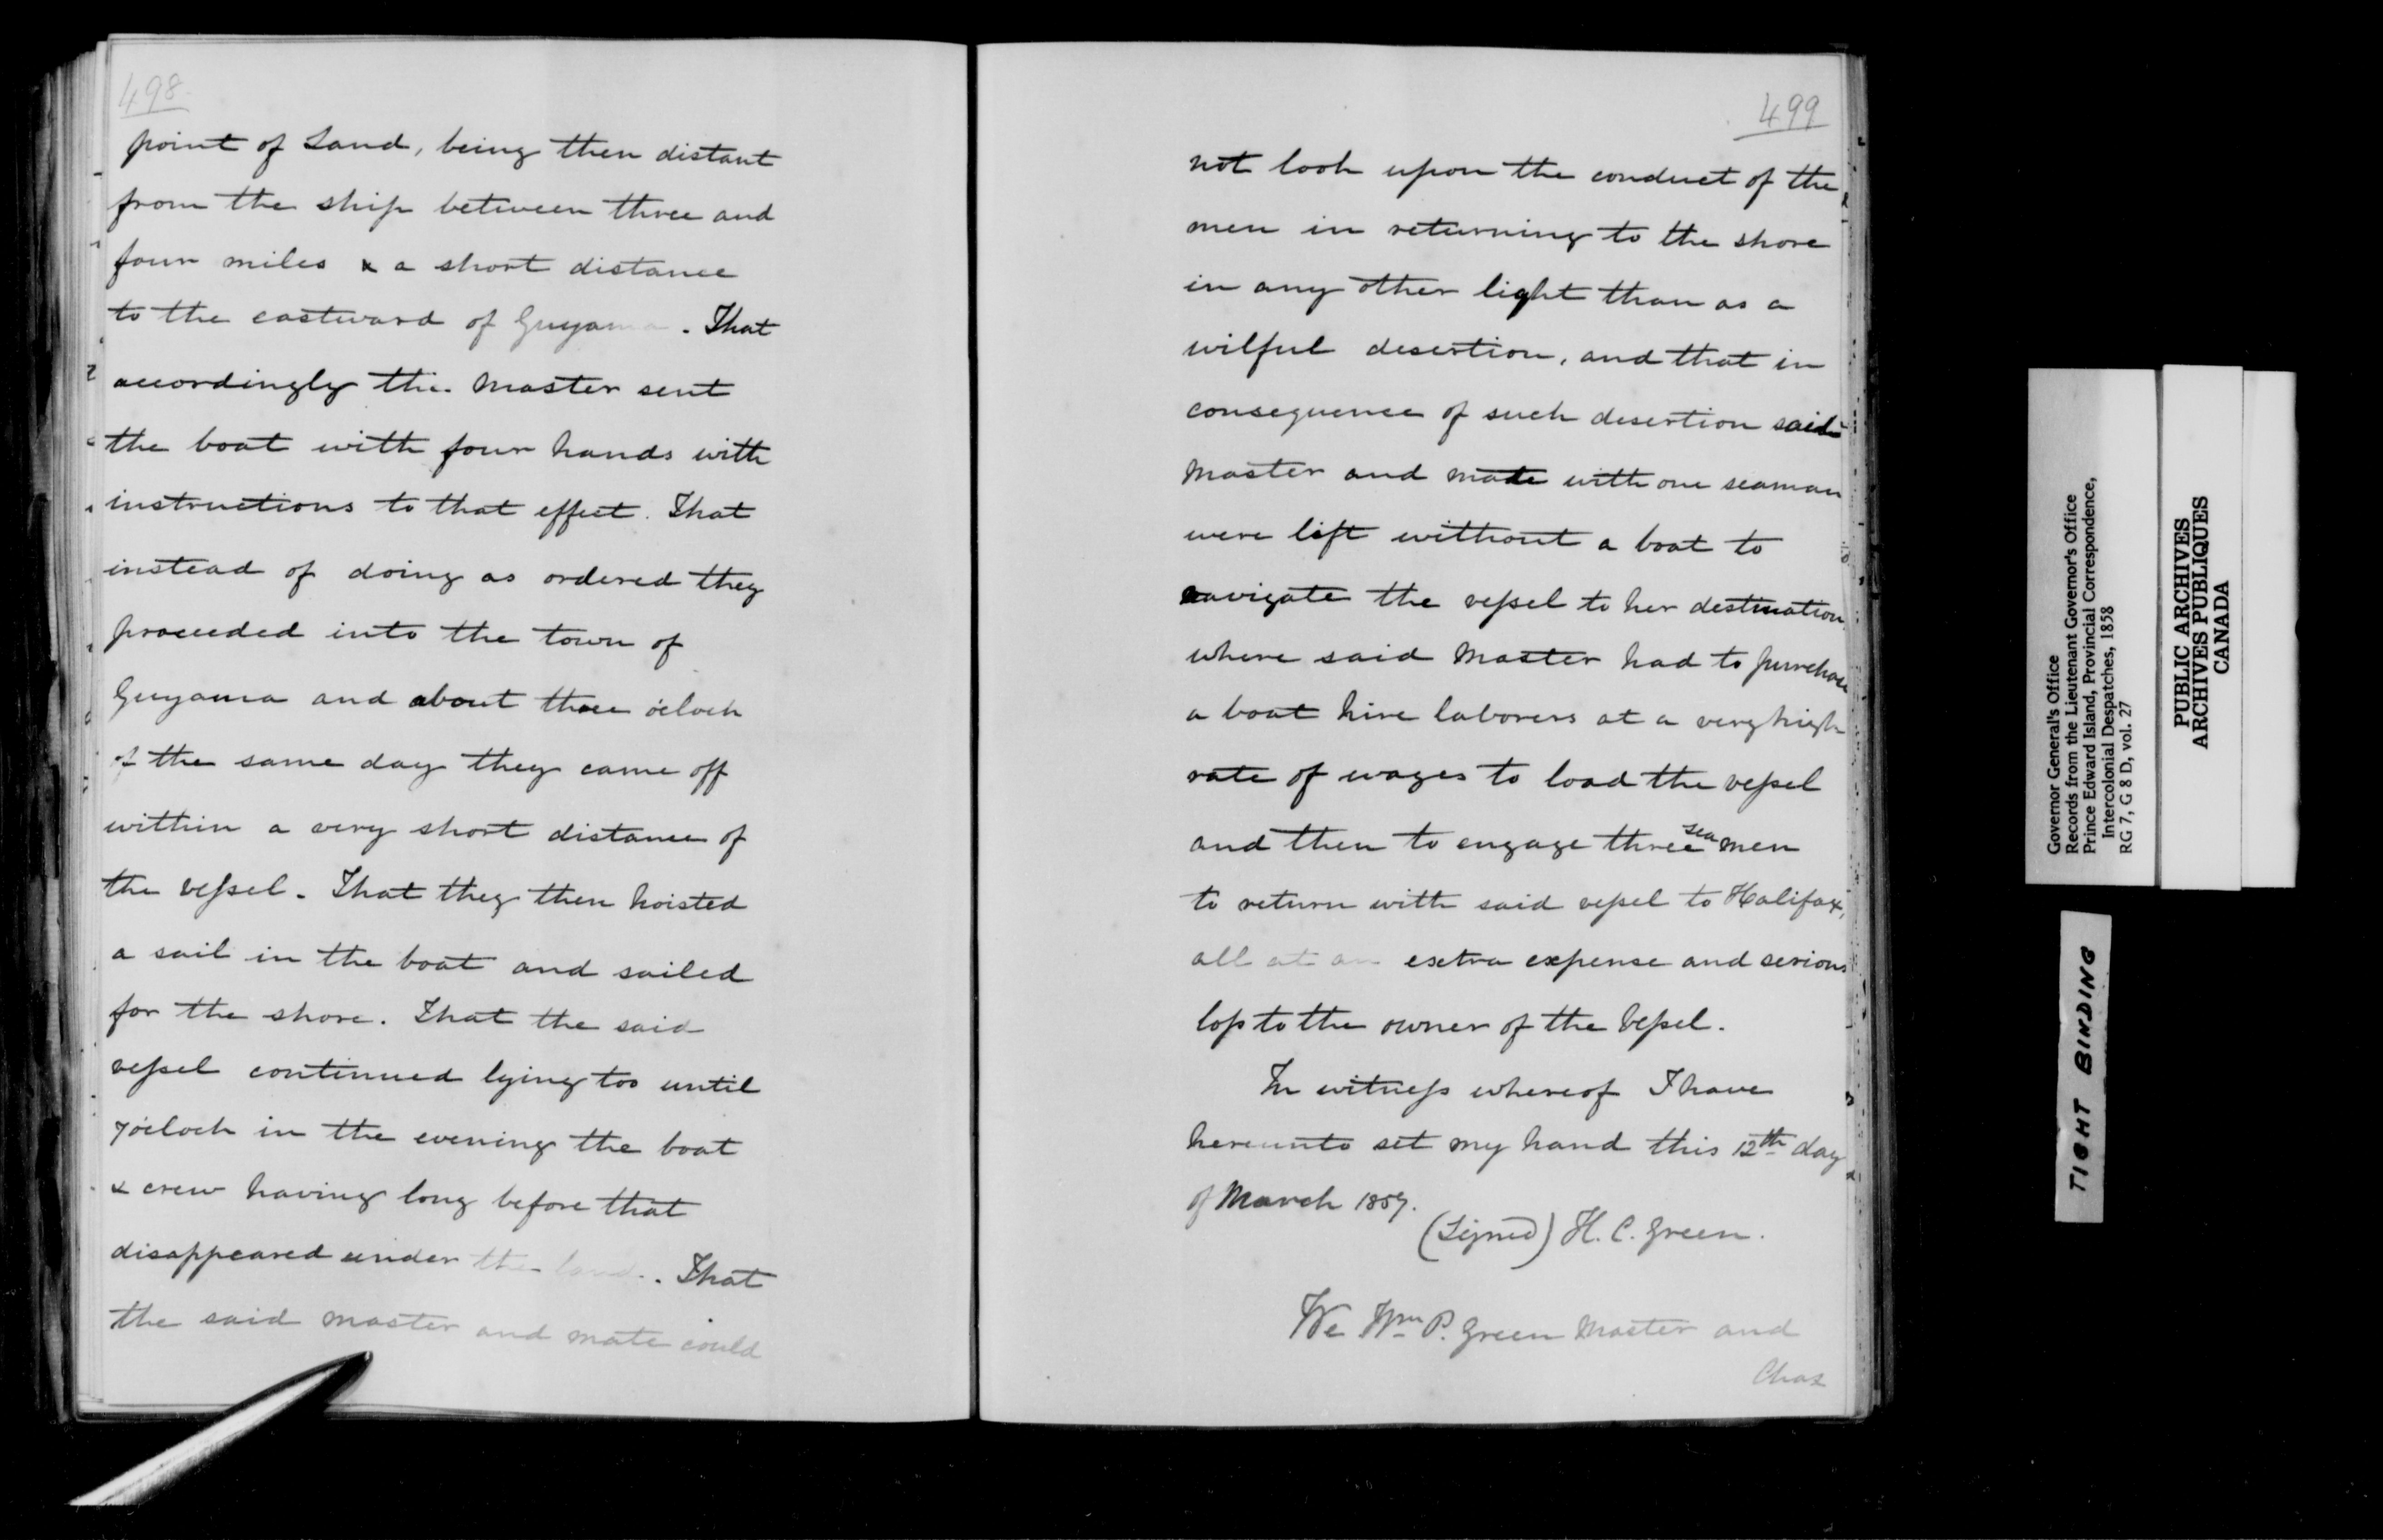 498
point of Land, being then distant
from the ship between three and
four miles & a short distance
to the eastward of Guyama. That
accordingly the Master sent
the boat with four hands with
instructions to that effect. That
instead of doing as ordered they
proceeded into the town of
Guyama and about three o'clock
of the same day they came off
within a very short distance of
the vessel. That they then hoisted
a sail in the boat and sailed
for the shore. That the said
vessel continued lying too until
7 o'clock in the evening the boat
& crew having long before that
disappeared under the land. That
the said master and mate could
499
not look upon the conduct of the
men in returning to the shore
in any other light than as a
wilful desertion, and that in
consequence of such desertion said
Master and mate with one seaman
were left without a boat to
navigate the vessel to her destination
where said Master had to purchase
a boat hire laborers at a very high
rate of wages to load the vessel
and then to engage three seamen
to return with said vessel to Halifax,
all at an extra expense and serious
loss to the owner of the Vessel.
In witness whereof I have
hereunto set my hand this 12th day
of March 1859.
(Signed) H. C. Green.
We Wm P. Green Master and
Chas
Governor General's Office
Records from the Lieutenant Governor's Office
Prince Edward Island, Provincial Correspondence,
Intercolonial Despatches, 1858
RG 7, G 8 D, vol. 27
PUBLIC ARCHIVES
ARCHIVES PUBLIQUES
CANADA
TIGHT BINDING